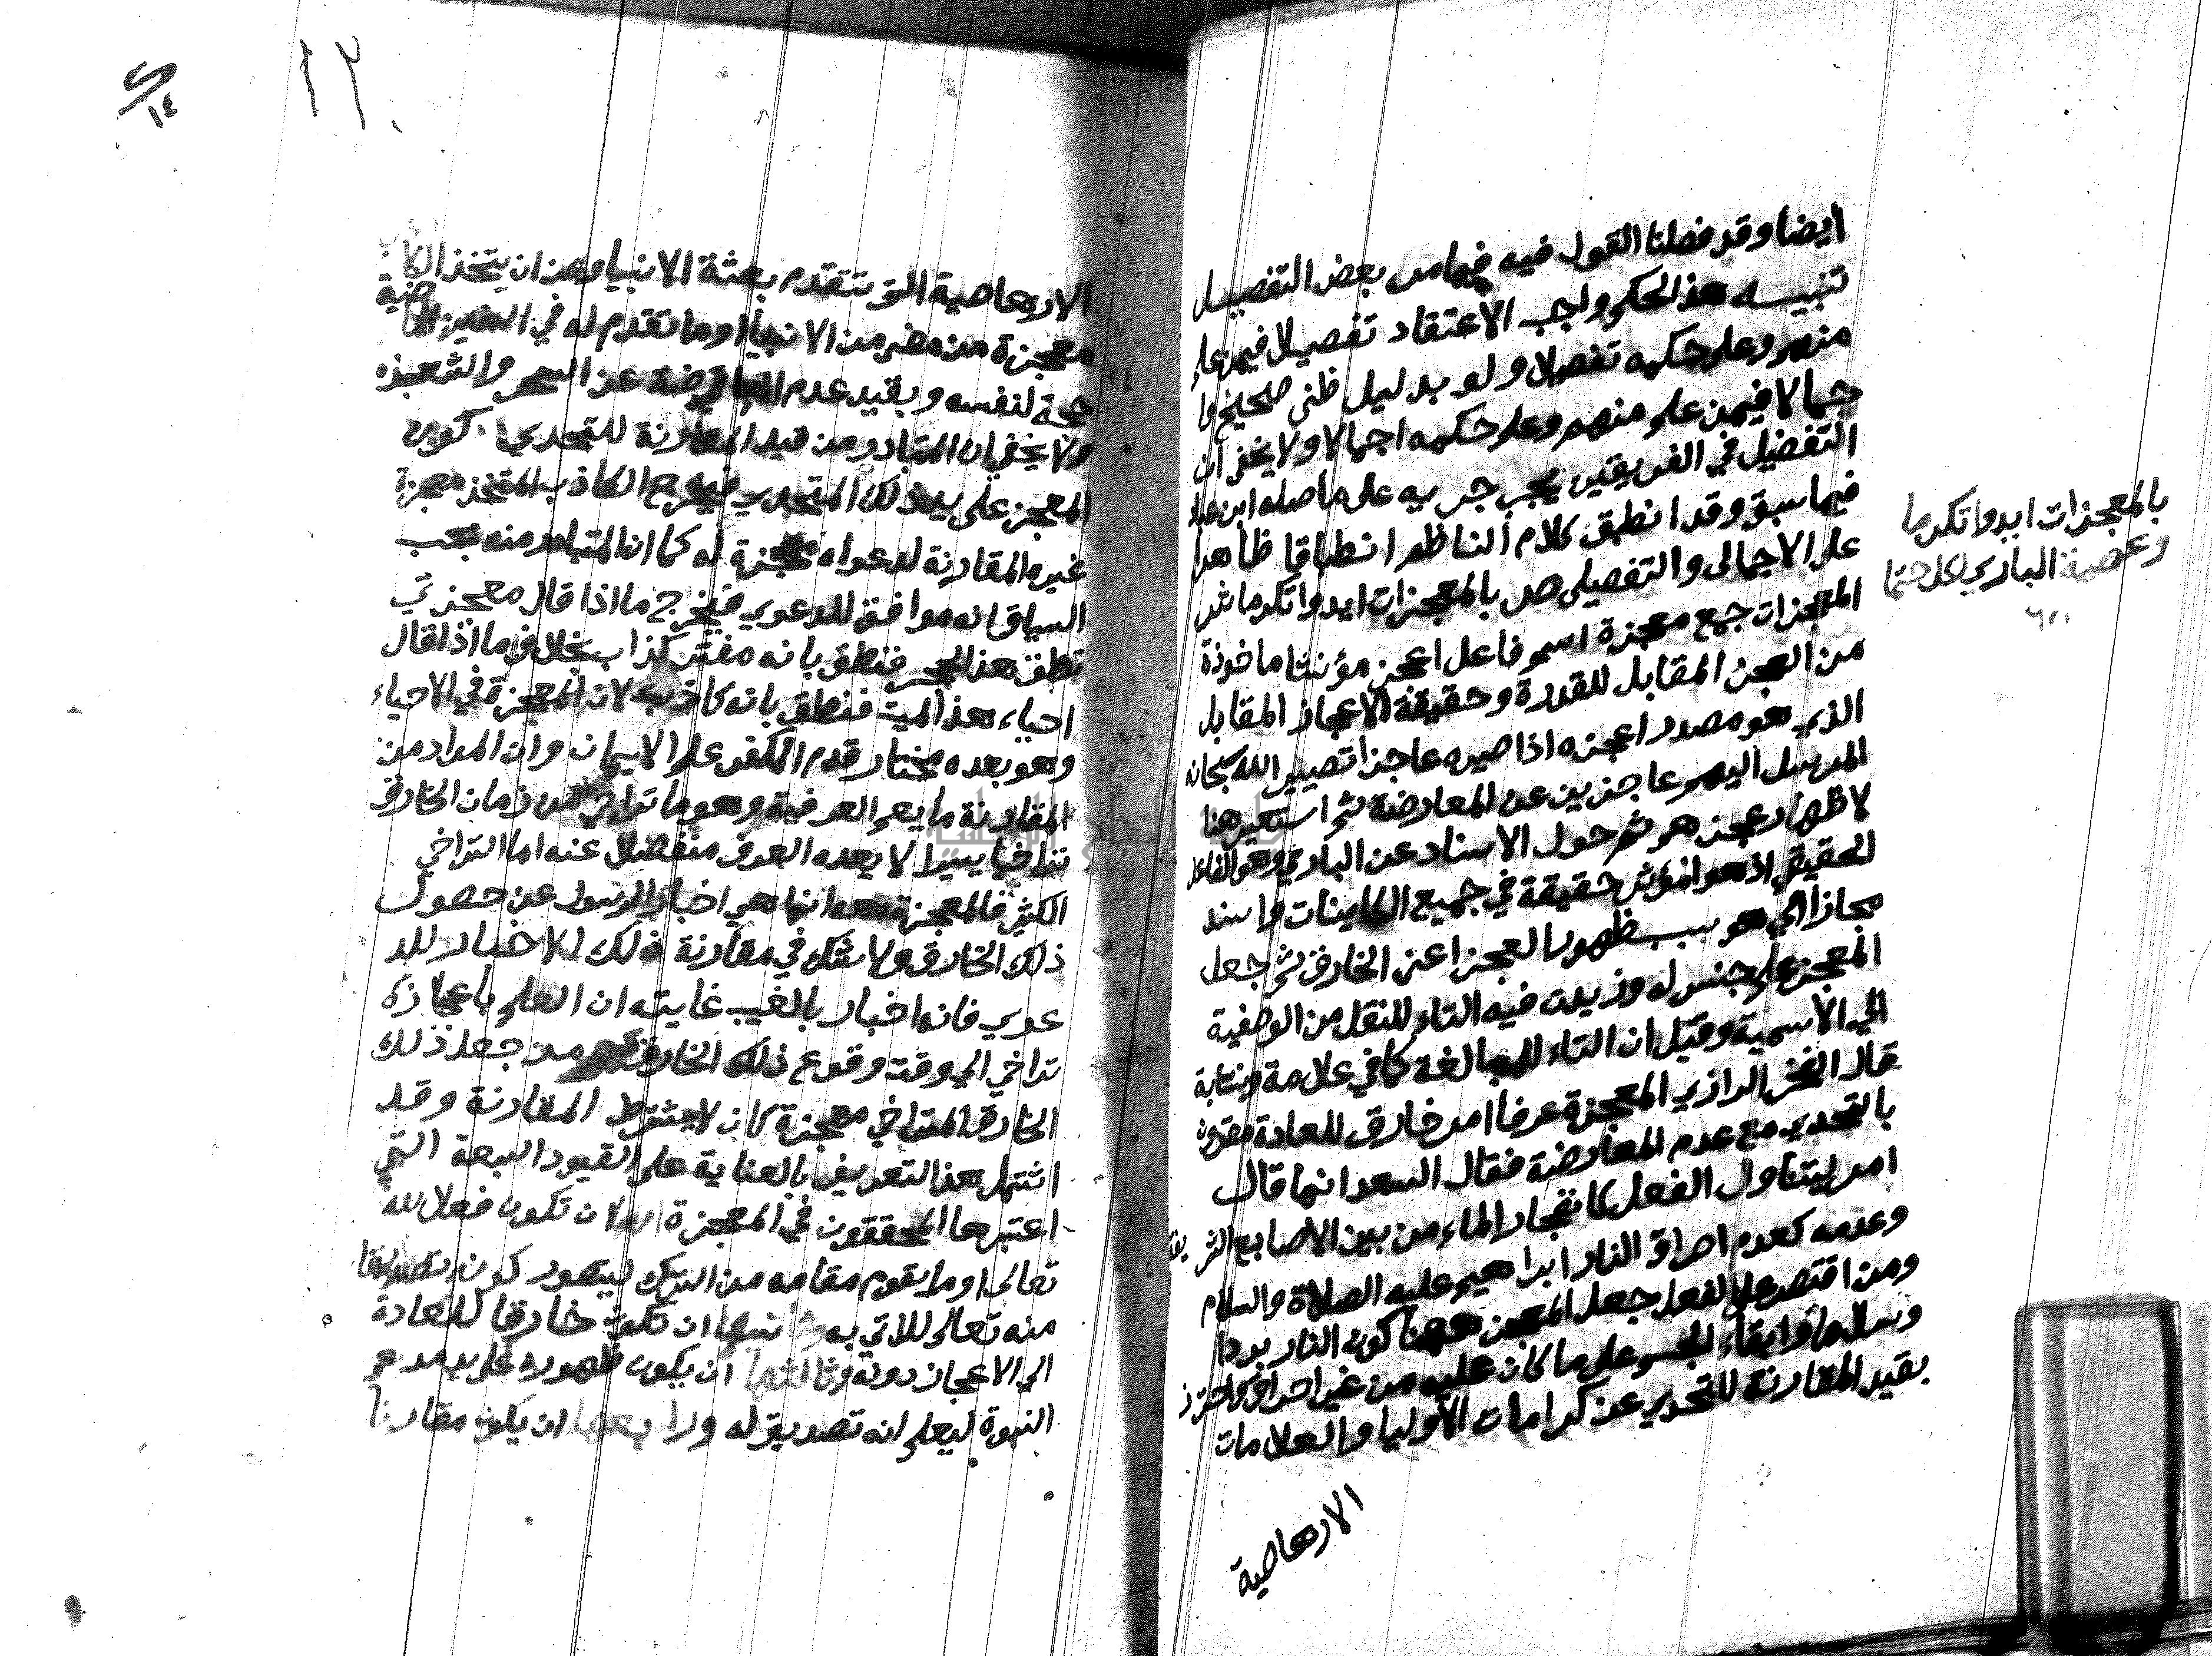 ايضا وقد فصلنا القول فيه فيما مر بعض التفصيل
تنبيه هذا الحكم واجب الاعتقاد تفصيلا فيمن علم
منهم وعلم حكمه تفصيلا ولو بدليل ظني صحيح وا
جمالا فيمن علم منهم وعلم حكمه اجمالا ولا يخفى ان
التفضيل في الفريقين يجب جريه على ما صله ابن
فيما سبق وقد انطبق كلام الناظم انطباقا ظاهرا
على الاجمالي والتفصيلي ص بالمعجزات ايدوا تكرما ش
المعجزات جمع معجزة اسم فاعل اعجز مؤنثا ماخوذة
من العجز المقابل للقدرة وحقيقة الاعجاز المقابل
الذي هو مصدر اعجزه اذا صيره عاجزا تصيير الله سبحانه
المرسل اليهم عاجزين عن المعارضة ثم استعير هنا
لاظهار عجزهم ثم حول الاسناد عن الباري وهو الفاعل
الحقيقي اذ هو المؤثر حقيقة في جميع الكاينات واسند
مجازا الى هو سبب ظهور العجز اعني الخارق ثم جعل
المعجز علم جنس له وزيدت فيه التاء للنقل من الوصفية
الي الاسمية وقيل ان التاء للمبالغة كما في علامة ونسابة
قال الفخر الرازي المعجزة عرفا امر خارق للعادة مقرون
بالتحدي مع عدم المعارضة فقال السعد انما قال
امر ليتناول الفعل كانفجار الماء من بين الاصابع الشريفة
وعدمه كعدم احراق النار ابراهيم عليه الصلاة والسلام
ومن اقتصر على الفعل جعل المعجز ههنا كون النار بردا
وسلاما وابقاء الجسم على ما كان عليه من غير احراق واحترز
بقيد المقارنة للتحدي عن كرامات الاوليا والعلامات
الارهاصية
بالمعجزات ايدوا تكرما
وعصمة الباري لكل حتما
١٢٠
١٤
الارهاصية التي تتقدم بعثة الانبيا وعن ان يتخذ الكاذب
معجزة من مضى من الانبيا او ما تقدم له في السنين الماضية
حجة لنفسه وبقيد عدم المعارضة عن السحر والشعبذه
ولا يخفى ان المتبادر من قيد المقارنة للتحدي كون
المعجز على يد ذلك المتحدي فيخرج الكاذب المتخذ معجزة
غيره المقارنة لدعواه معجزة له كما ان المتبادر منه بحسب
السياق انه موافق للدعوي فيخرج ما اذا قال معجزتي
نطق هذا الحجر فنطق بانه مفتر كذاب بخلاف ما اذا قال
احياء هذا الميت فنطق بانه كاذب لان المعجزة في الاحياء
وهو بعده مختار قدم الكفر على الايمان وان المراد من
المقارنة ما يعم العرفية وهو ما تراخي عن زمان الخارق
تراخيا يسيرا لا يعده العرف منفصلا عنه اما التراخي
الكثير فالمعجزة معه انما هي اخبار الرسول عن حصول
ذلك الخارق ولا شك في مقارنة ذلك الاخبار للد
عوي فانه اخبار بالغيب غايته ان العلم باعجازه
تراخي الي وقت وقوع ذلك الخارق من جعل ذلك
الخارق المتراخي معجزة كان لا يشترط المقارنة وقد
اشتمل هذا التعريف بالعناية على القيود السبعة التي
اعتبرها المحققون في المعجزة ان تكون فعلا لله
تعالى او ما يقوم مقامه من الترك ليتصور كونه تصديقا
منه تعالى للاتي به وثانيها ان تكون خارقا للعادة
الى الاعجاز دونه وثالثها ان يكون ظهوره على يد مدعي
النبوة ليعلم انه تصديق له ورابعها ان يكون مقارنا